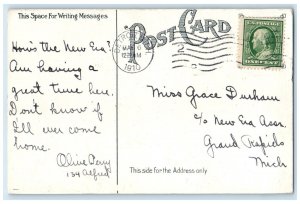 This Space For Writing Messages
POST CARD
How's the New Era?
Am having a
great time here.
Don't know if
I'll ever come
home.
Olive
139 Alfred
1910
Miss Grace Durham
c/o New Era Assn.
Grand Rapids
Mich
This side for the Address only